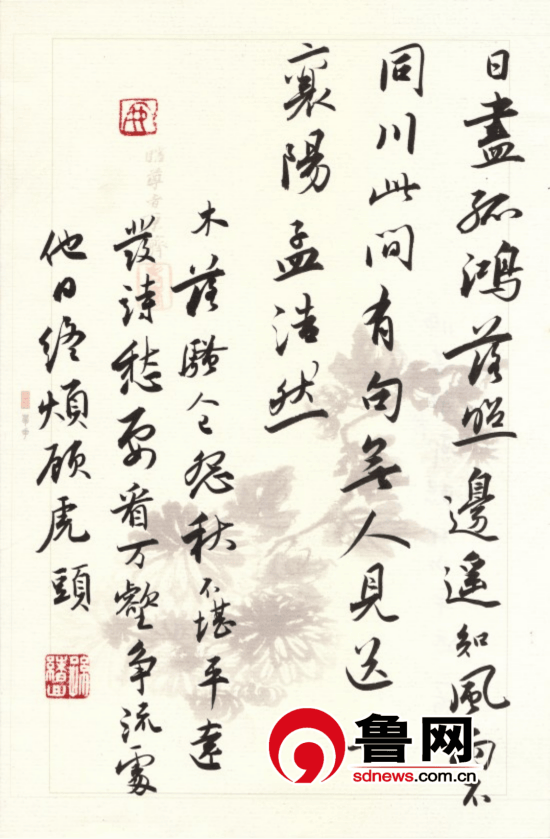 日盡孤鴻落照邊遙知風雨不
同川此間有句無人見送
襄陽孟浩然
木落騷人已怨秋不堪平遠
發詩愁要看万壑争流處
他日終煩顧虎頭
鲁网
sdnews.com.cn